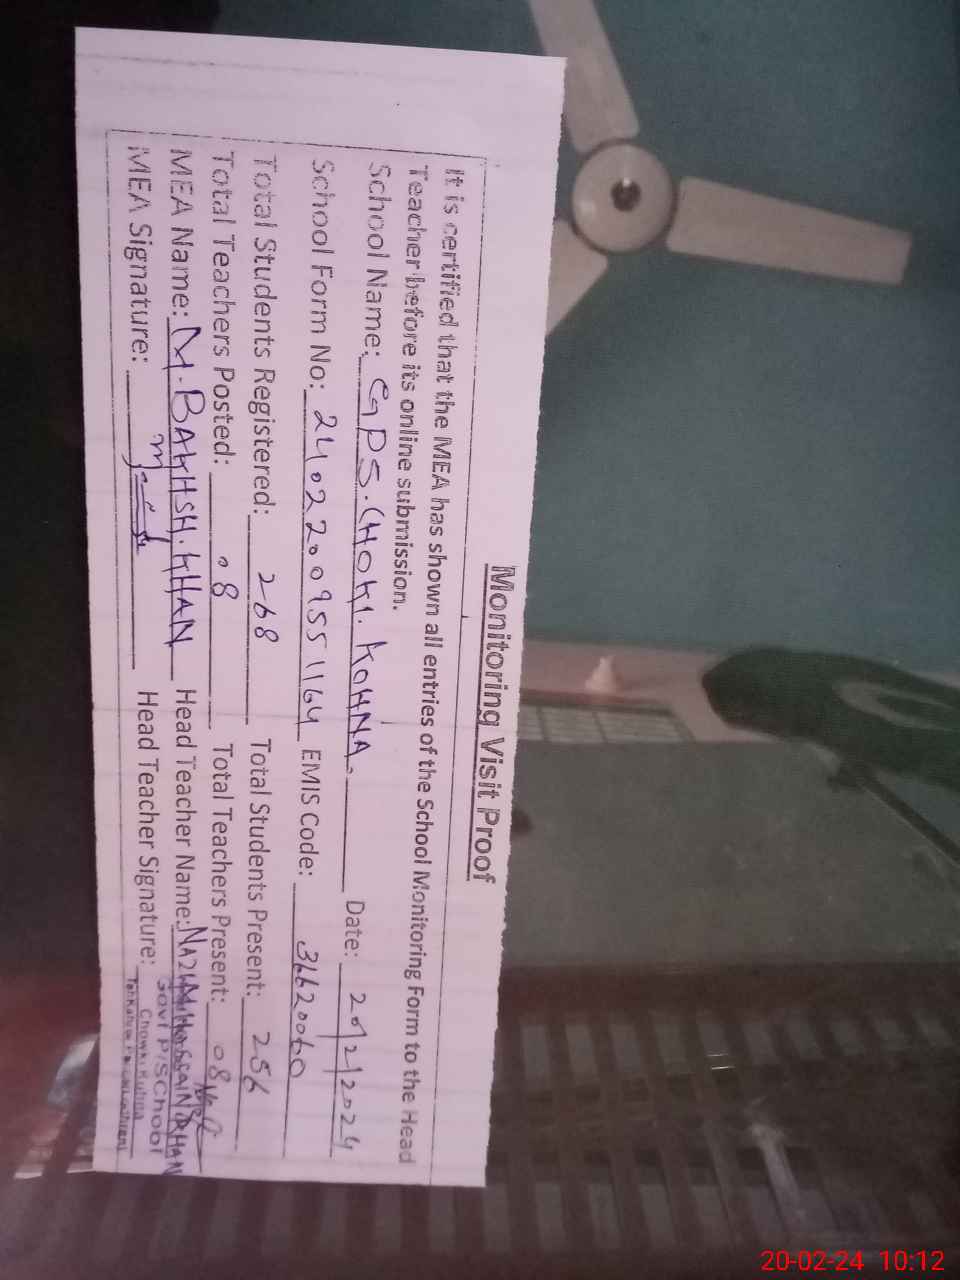 Monitoring Visit Proof
It is certified that the MEA has shown all entries of the School Monitoring Form to the Head
Teacher before its online submission.
School Name: GPS. CHOKI. KOHNA. Date: 20/2/2024
School Form No: 24022009551164 EMIS Code: 36620060
Total Students Registered: 268 Total Students Present: 256
Total Teachers Posted: 08 Total Teachers Present: 08
MEA Name: M. BAKHSH. KHAN Head Teacher Name:
MEA Signature: Head Teacher Signature:
Govt P/SChool
Chowki Kuhna
20-02-24 10:12